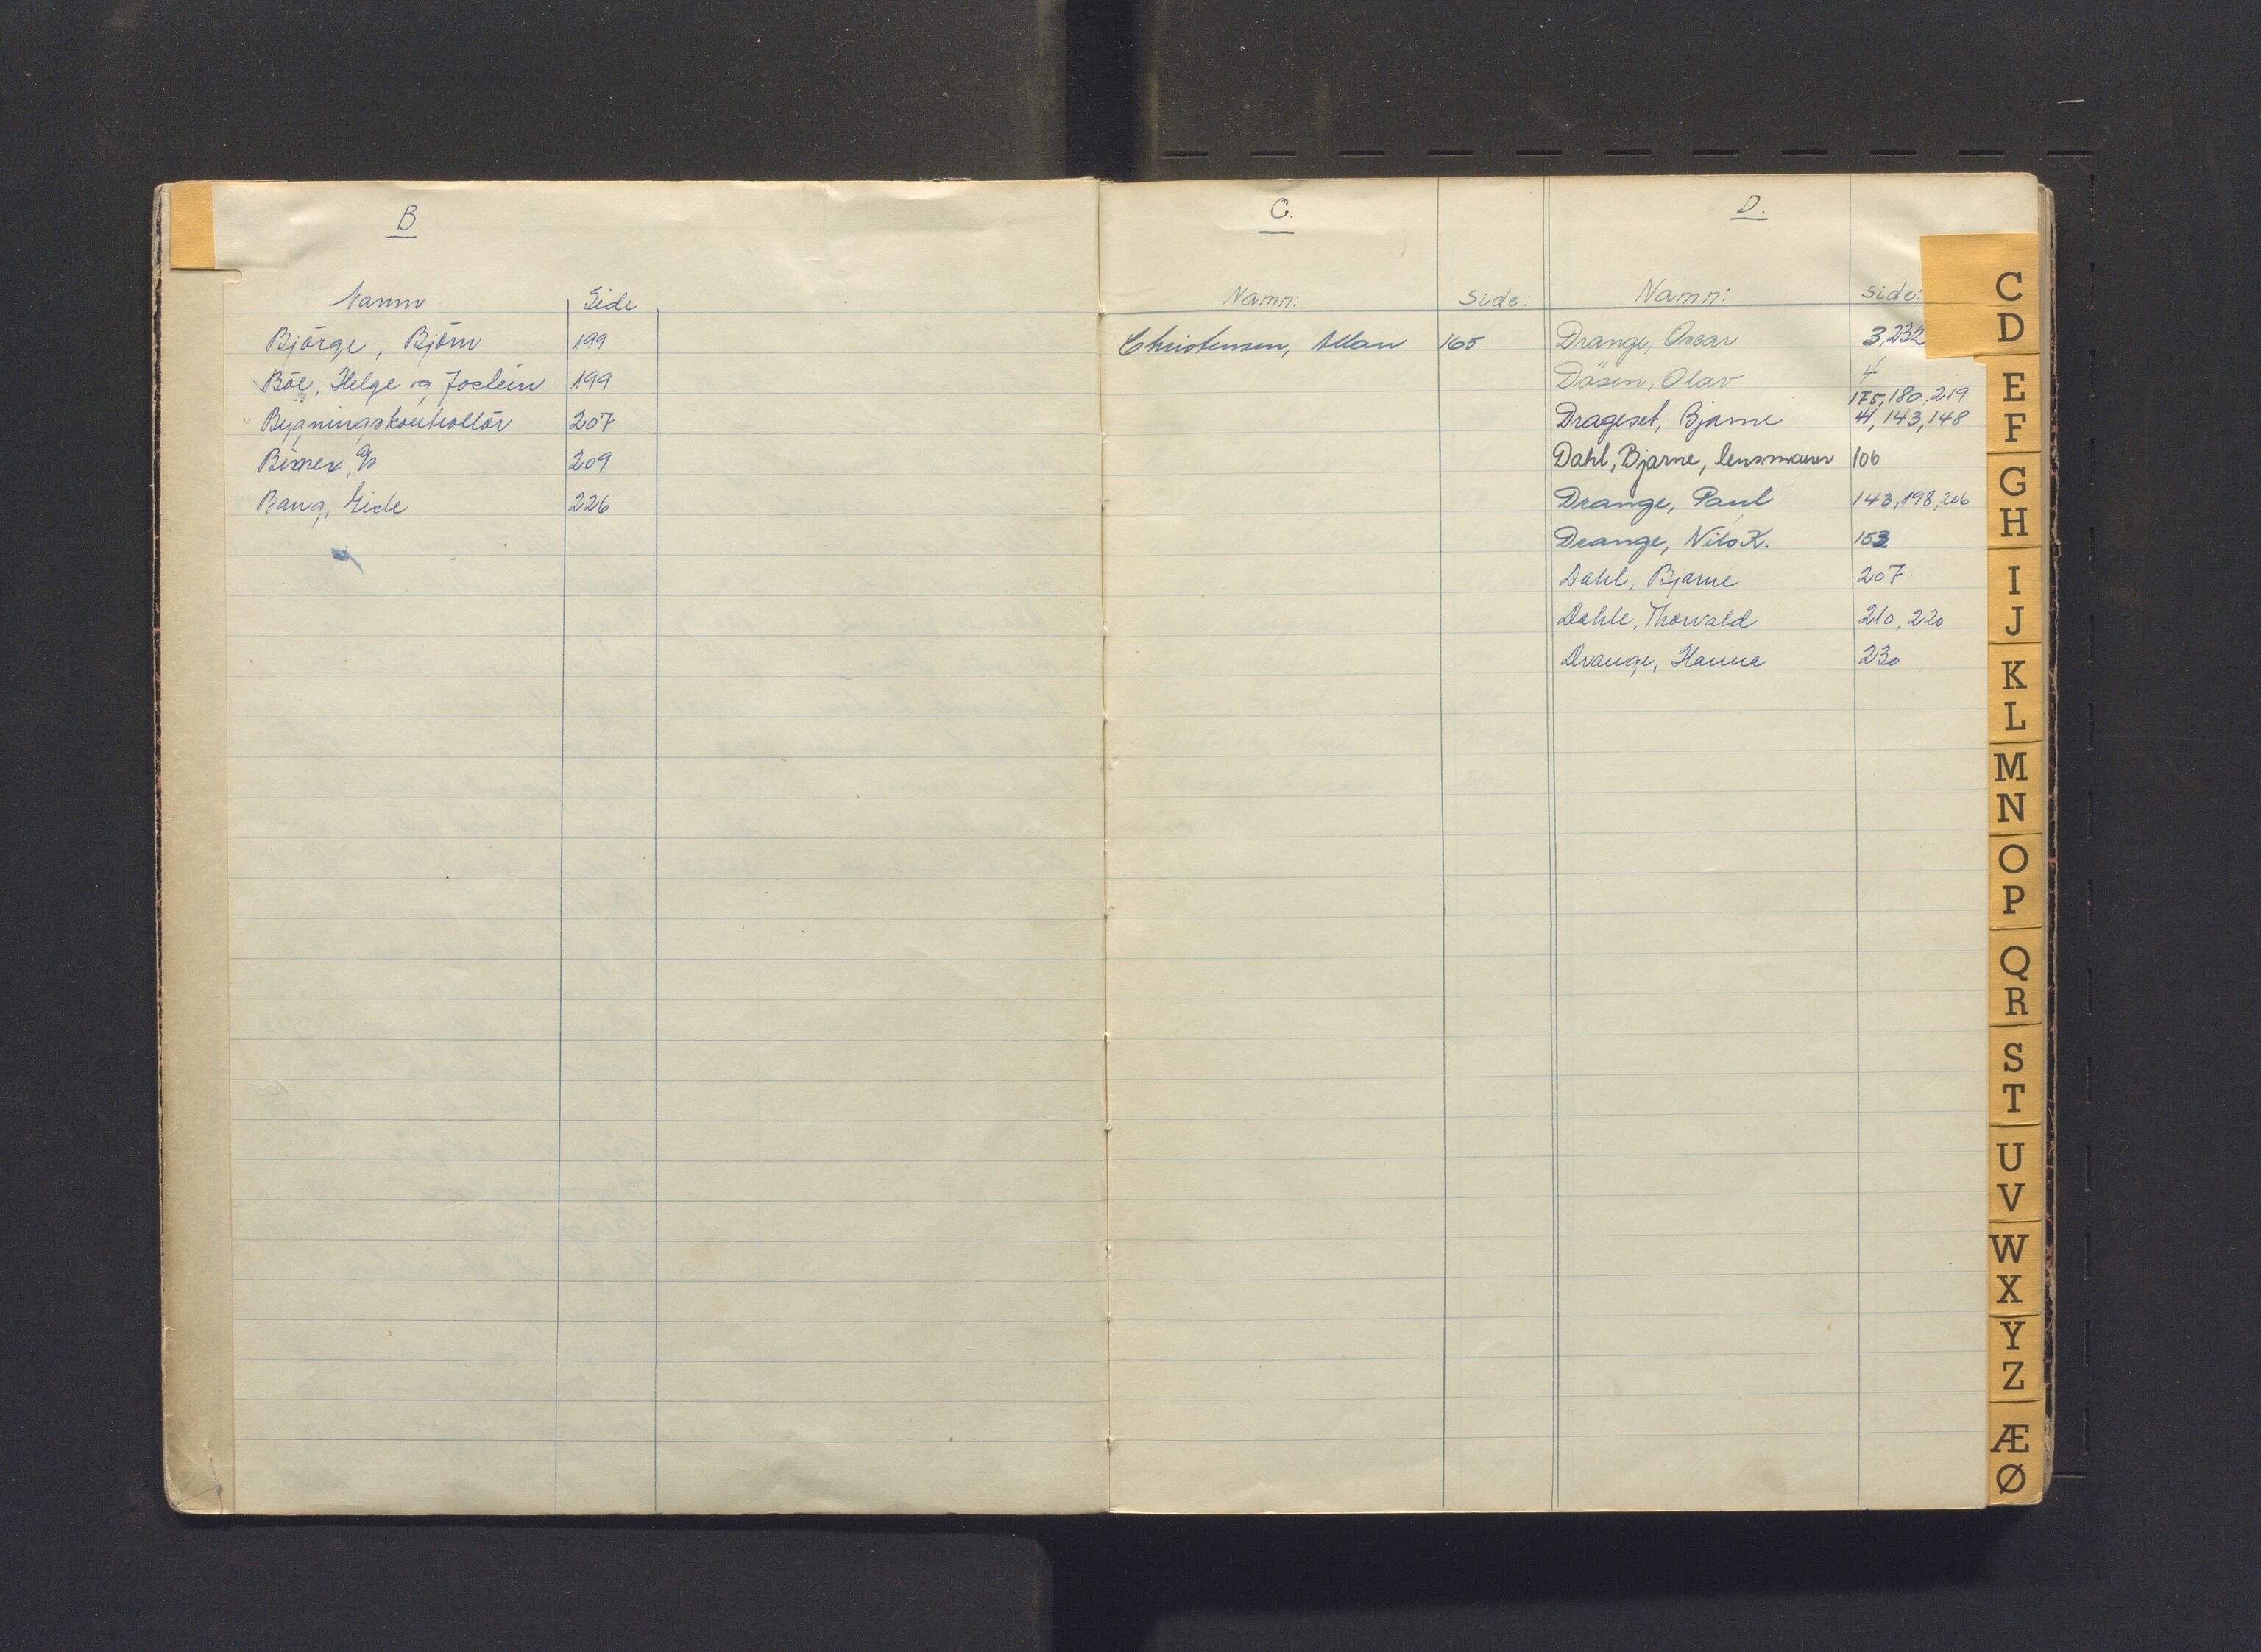 B
Namn Side
Björge, Björn 199
Böe, Helge og Jostein 199
Bygningskontrollör 207
Bimex, A/S 209
Bang, Gide 226
C.
Namn: Side:
Christensen, Allan 165
D.
Namn: Side:
Drange, Oscar 3, 232
Døsen, Olav 4
175, 180, 219
Drageset, Bjarne 41, 143, 148
Dahl, Bjarne, lensmann 106
Drange, Paul 143, 198, 206
Drange, Nils K. 153
Dahl, Bjarne 207
Dahle, Thorvald 210, 220
Drange, Hanna 230
C
D
E
F
G
H
I
J
K
L
M
N
O
P
Q
R
S
T
U
V
W
X
Y
Z
Æ
Ø